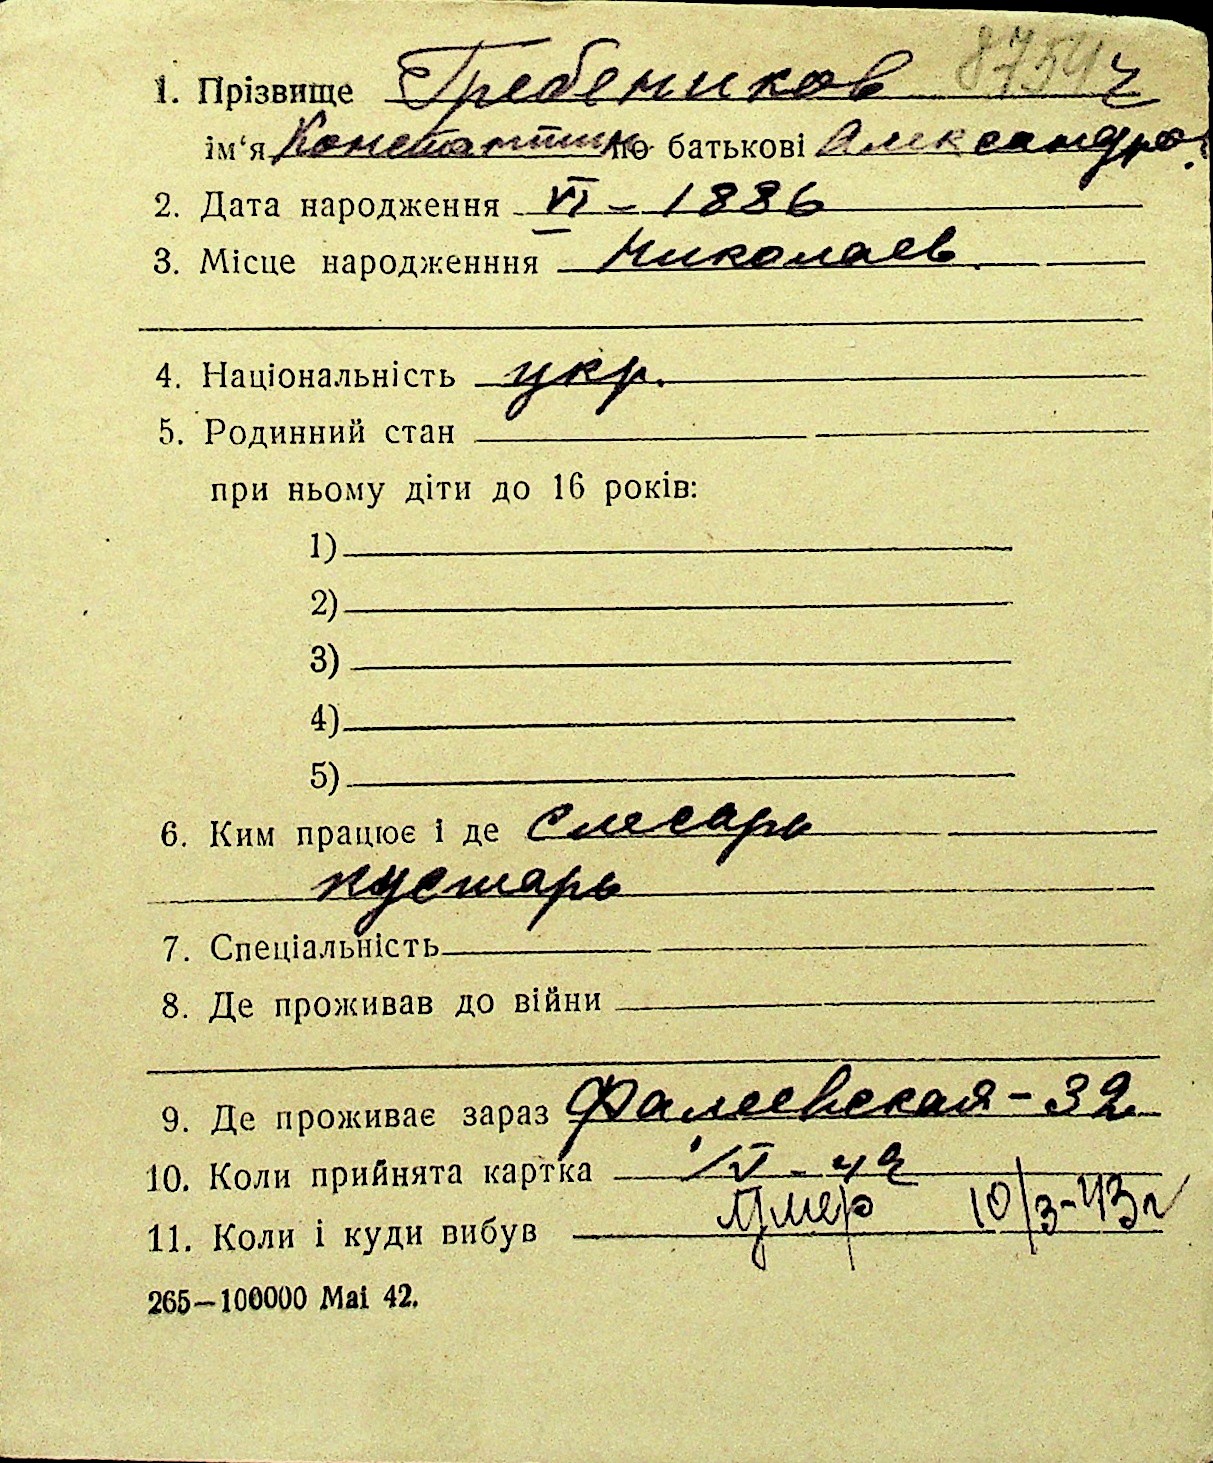 8754
1. Прізвище Гребеников ч
ім‘я Константин по батькові Александро.
2. Дата народження VI – 1886
3. Місце народженння Николаев.
4. Національність укр.
5. Родинний стан
при ньому діти до 16 років:
1)
2)
3)
4)
5)
6. Ким працює і де Слесарь
кустарь
7. Спеціальність
8. Де проживав до війни
9. Де проживає зараз Фалеевская – 32
10. Коли прийнята картка IV – 42
11. Коли і куди вибув Умер 10/3-43г
265—100000 Mai 42.